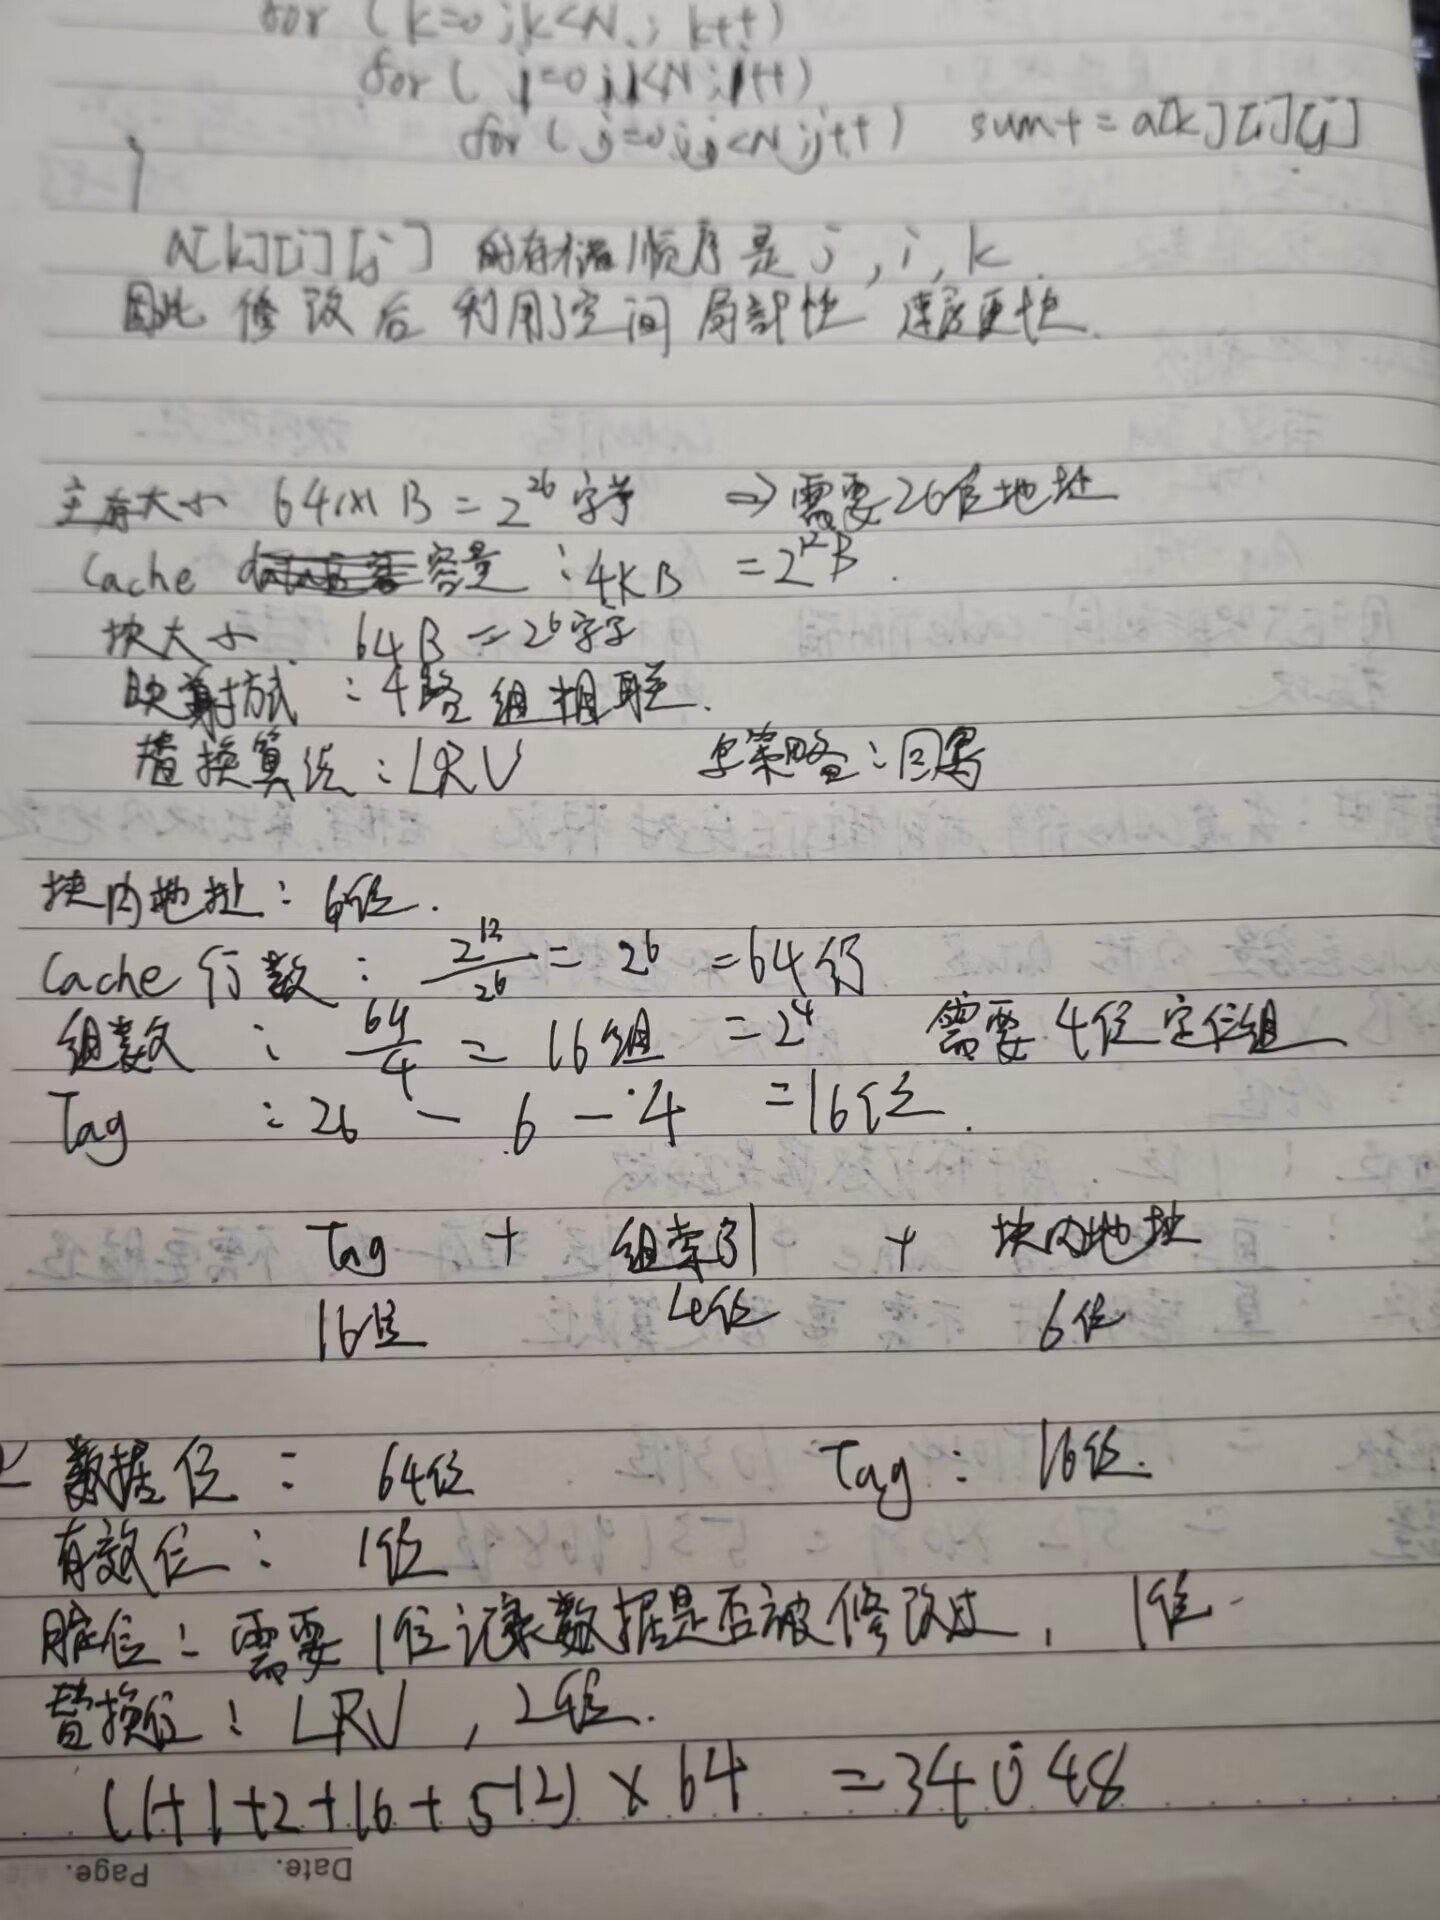 for (k=0;k<N; k++)
for ( i=0;i<N;i++)
for (j=0;j<N;j++) sum+=a[k][i][j]
}
a[k][i][j] 的存储顺序是 j, i, k.
因此 修改后 利用了空间局部性 速度更快.
主存大小 64MB=2^26字节 => 需要26位地址
Cache 容量:4KB =2^12B.
块大小 64B=2^6字节
映射方式:4路组相联.
替换算法:LRU 写策略:回写
块内地址: 6位.
Cache行数: 2^12/2^6=2^6=64行
组数: 64/4=16组=2^4 需要4位定位组
Tag :26-6-4 =16位.
Tag + 组索引 + 块内地址
16位 4位 6位
数据位: 64位 Tag: 16位.
有效位: 1位
脏位: 需要1位记录数据是否被修改过, 1位.
替换位: LRU, 2位.
(1+1+2+16+512)×64 =34048
Date. Page.